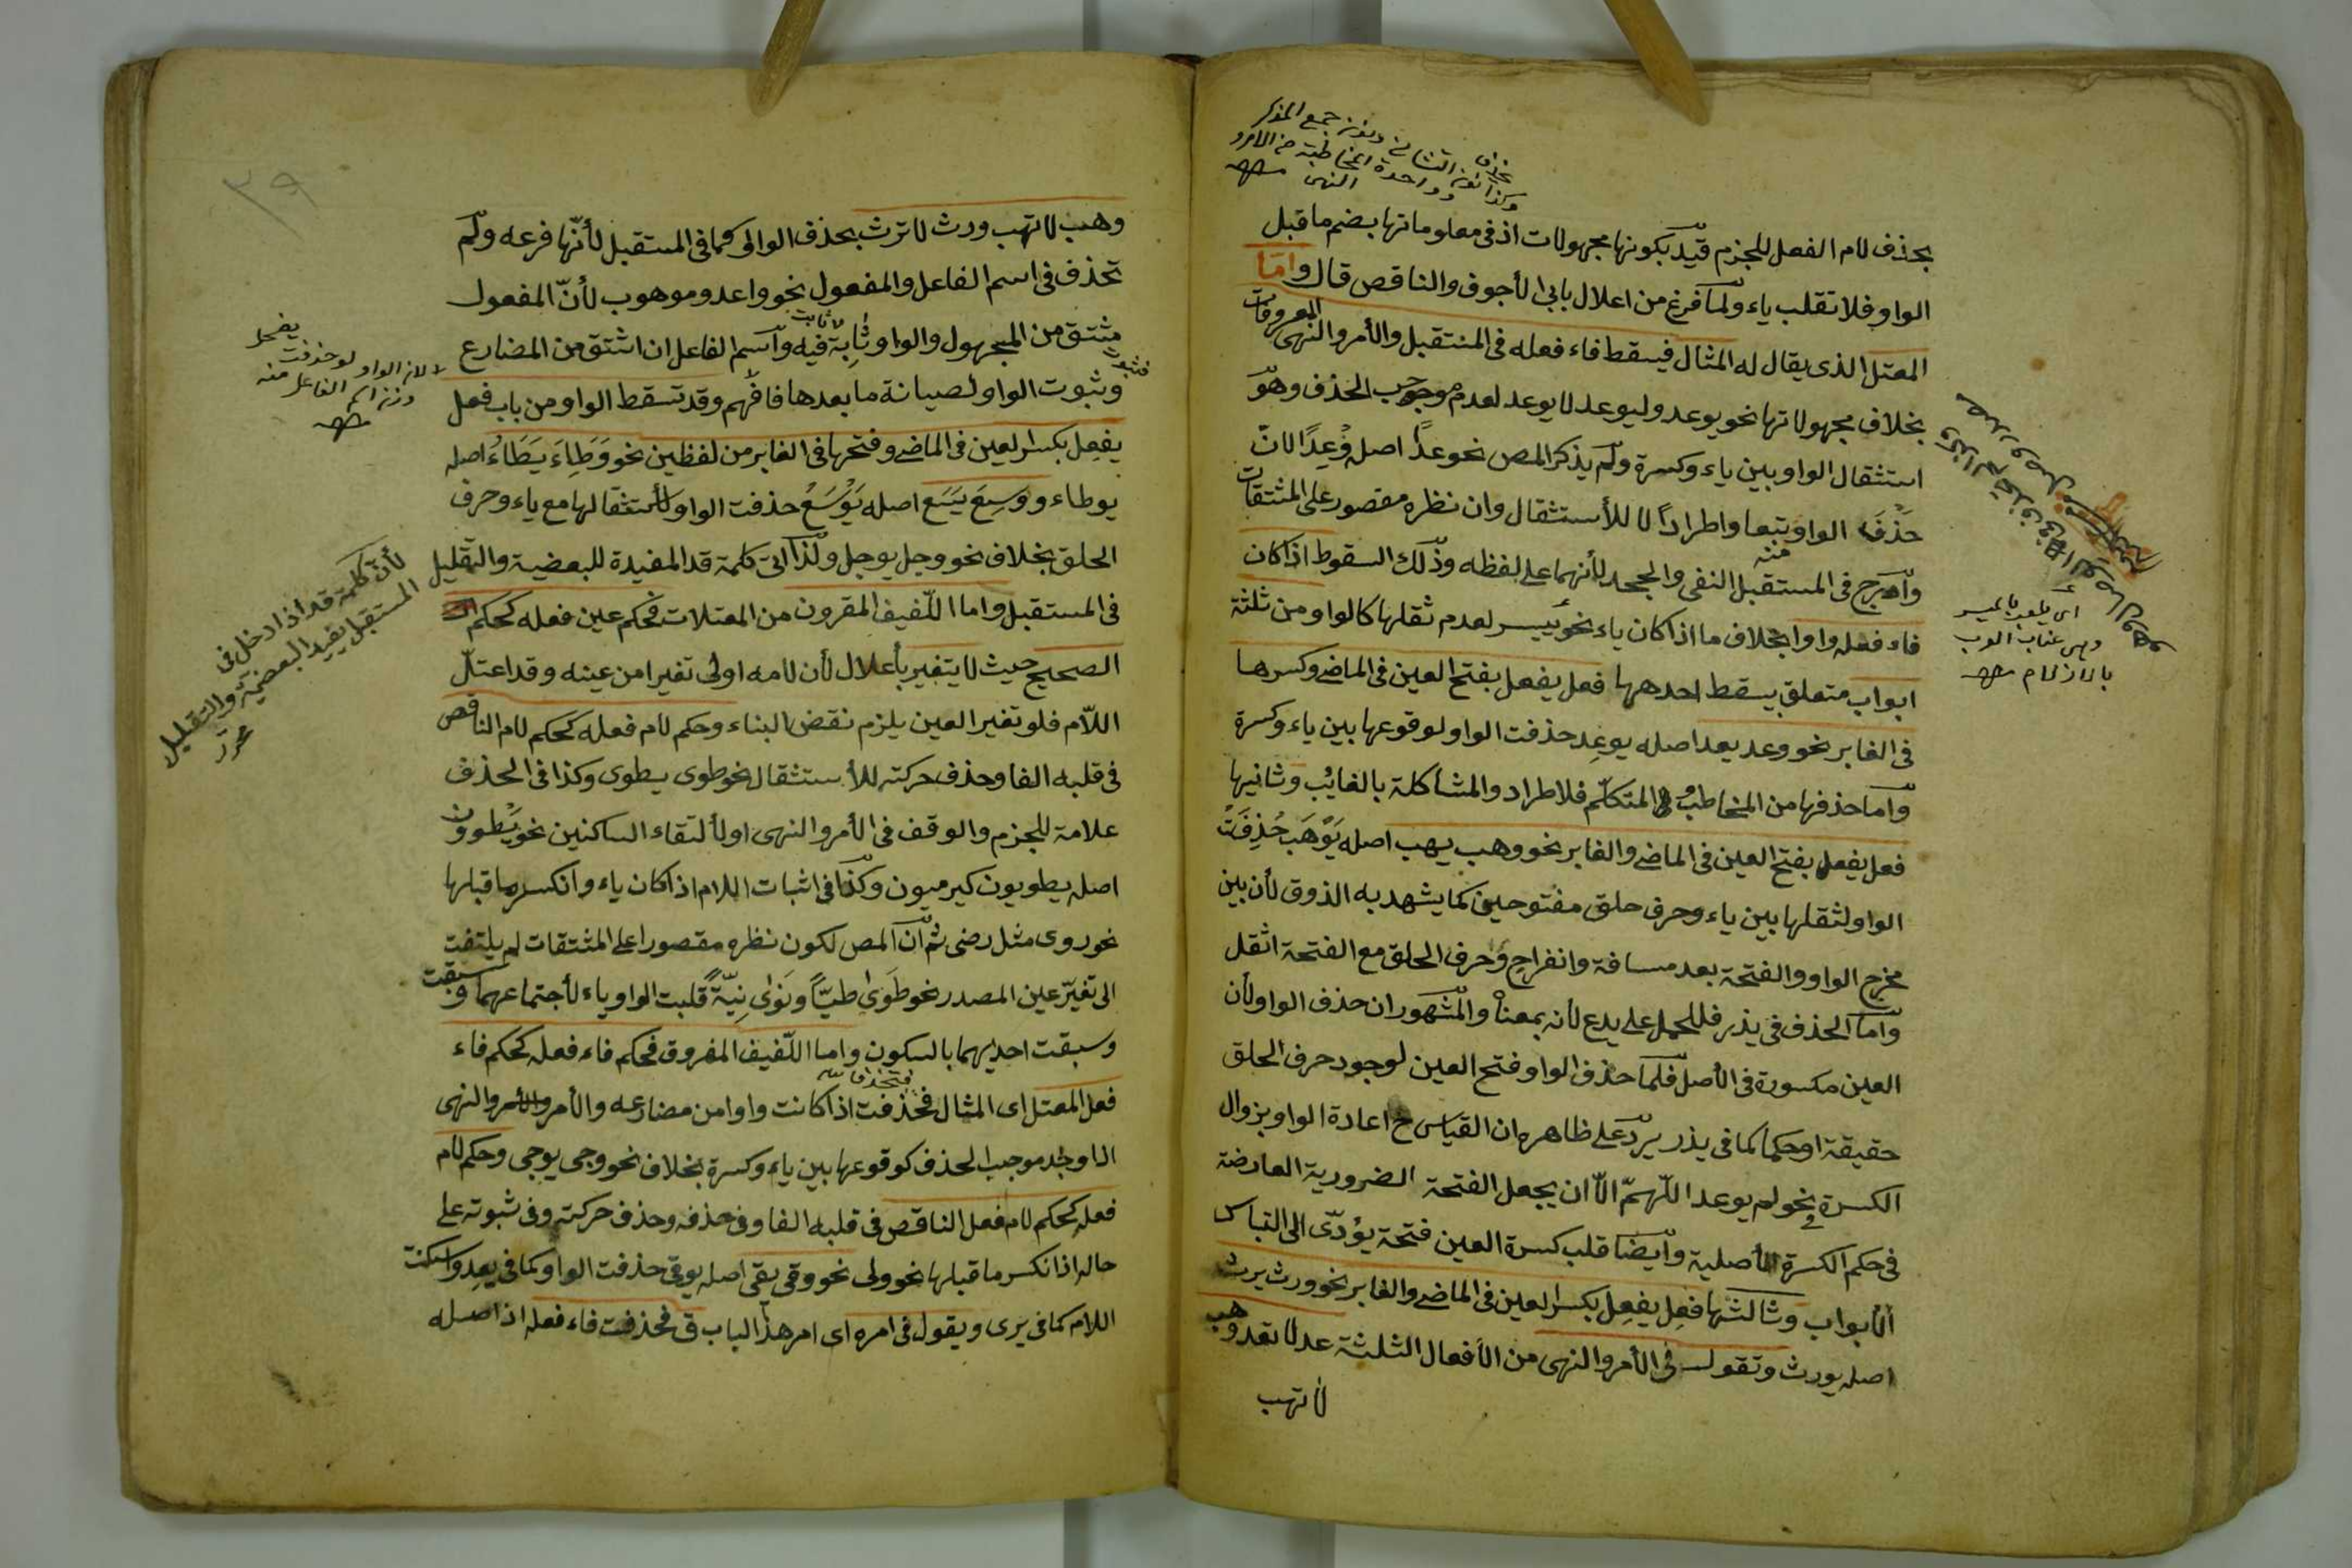 بحذف لام الفعل للجزم قيّد بكونها مجهولات اذ فى معلوماتها بضم ما قبل
الواو فلا تقلب ياء ولمّا فرغ من اعلال بابى الأجوف والناقص قال واما
المعتل الذى يقال له المثال فيسقط فاء فعله فى المستقبل والأمر والنهى المعروفات
بخلاف مجهولاتها نحو يوعد وليوعد لا يوعد لعدم موجب الحذف وهو
استثقال الواو بين ياء وكسرة ولم يذكر المص نحو عدًا اصله وُعِدًا لانّ
حذف الواو تبعا واطرادًا لا للأستثقال وان نظره مقصور على المشتقات
وادرج فى المستقبل النفى والجحد لأنهما على لفظه وذلك السقوط اذا كان
منه
فاء فعله واوا بخلاف ما اذا كان ياء نحو ييسر لعدم ثقلها كالواو من ثلثة
ابواب متعلق بيسقط احدهما فعل يفعل بفتح العين فى الماضى وكسرها
فى الغابر نحو وعد يعد اصله يوعِد حذفت الواو لوقوعها بين ياء وكسرة
وأما حذفها من المخاطب والمتكلّم فلاطراد والمشاكلة بالغايب وثانيها
فعل يفعل بفتح العين فى الماضى والغابر نحو وهب يهب اصله يَوْهَب حُذِفَتْ
الواو لثقلها بين ياء وحرف حلق مفتوحين كما يشهد به الذوق لأن بين
مخرج الواو والفتحة بعد مسافة وانفراج وحرف الحلق مع الفتحة اثقل
وأما الحذف فى يذر فللحمل على يدع لأنه بمعناه والمشهور ان حذف الواو لأن
العين مكسورة فى الأصل فلما حذف الواو فتح العين لوجود حرف الحلق
حقيقة او حكما كما فى يذر يردّ على ظاهره ان القياس ح اعادة الواو بزوال
الكسرة نحو لم يوعد اللّهمّ الاّ ان يجعل الفتحة الضرورية العارضة
فى حكم الكسرة الأصلية وأيضا قلب كسرة العين فتحة يؤدّى الى التباس
الأبواب وثالثها فعِل يفعِل بكسر العين فى الماضى والغابر نحو ورث يرث
اصله يورث وتقول فى الأمر والنهى من الأفعال الثلثة عد لا تعد وهب
لا تهب
اى يلعب بالميسر
٣٩
وهب لا تهب ورث لا ترث بحذف الواو كما فى المستقبل لأنّها فرعه ولم
تحذف فى اسم الفاعل والمفعول نحو واعد وموهوب لأنّ المفعول
مشتق من المجهول والواو ثابتة فيه واسم الفاعل ان اشتق من المضارع
وثبوت الواو لصيانة ما بعدها فافهم وقد تسقط الواو من باب فعل
يفعل بكسر العين فى الماضى وفتحها فى الغابر من لفظين نحو وَطِاءَ يَطَاءُ اصله
يوطاء ووَسِعَ يَسَع اصله يَوْسَعُ حذفت الواو لأستثقالها مع ياء وحرف
الحلق بخلاف نحو وجل يوجل ولذا اتى كلمة قد المفيدة للبعضية والتقليل
فى المستقبل واما اللّفيف المقرون من المعتلات فحكم عين فعله كحكم
الصحيح حيث لا يتغير بأعلال لأن لامه اولى تغيرا من عينه وقد اعتلّ
اللاّم فلو تغير العين يلزم نقض البناء وحكم لام فعله كحكم لام الناقص
فى قلبه الفا وحذف حركته للأستثقال نحو طوى يطوى وكذا فى الحذف
علامة للجزم والوقف فى الأمر والنهى او لألتقاء الساكنين نحو يَطْوون
اصله يطويون كيرميون وكذا فى اثبات اللام اذا كان ياء وانكسر ما قبلها
نحو روى مثل رضى ثم ان المص لكون نظره مقصورا على المشتقات لم يلتفت
الى تغيّر عين المصدر نحو طَوَى طيّاً ونَوَى نِيّةً قلبت الواو ياء لأجتماعهما وسبقت
وسبقت احديهما بالسكون واما اللّفيف المفروق فحكم فاء فعله كحكم فاء
فعل المعتل اى المثال فحذفت اذا كانت واوا من مضارعه والأمر والنهى
اذا وجد موجب الحذف كوقوعها بين ياء وكسرة بخلاف نحو وجى يوجى وحكم لام
فعله كحكم لام فعل الناقص فى قلبه الفا وفى حذفه وحذف حركته وفى ثبوته على
حاله اذا انكسر ما قبلها نحو ولى نحو وقى يقى اصله يوقى حذفت الواو كما فى يعد واسكنت
اللام كما فى يرى ويقول فى امره اى امر هذا الباب ق فحذفت فاء فعله اذ اصله
لان الواو لو حذفت
وزن اسم الفاعل منه
لأن كلمة قد اذا دخل فى
المستقبل يفيد البعضية والتقليل
محرر